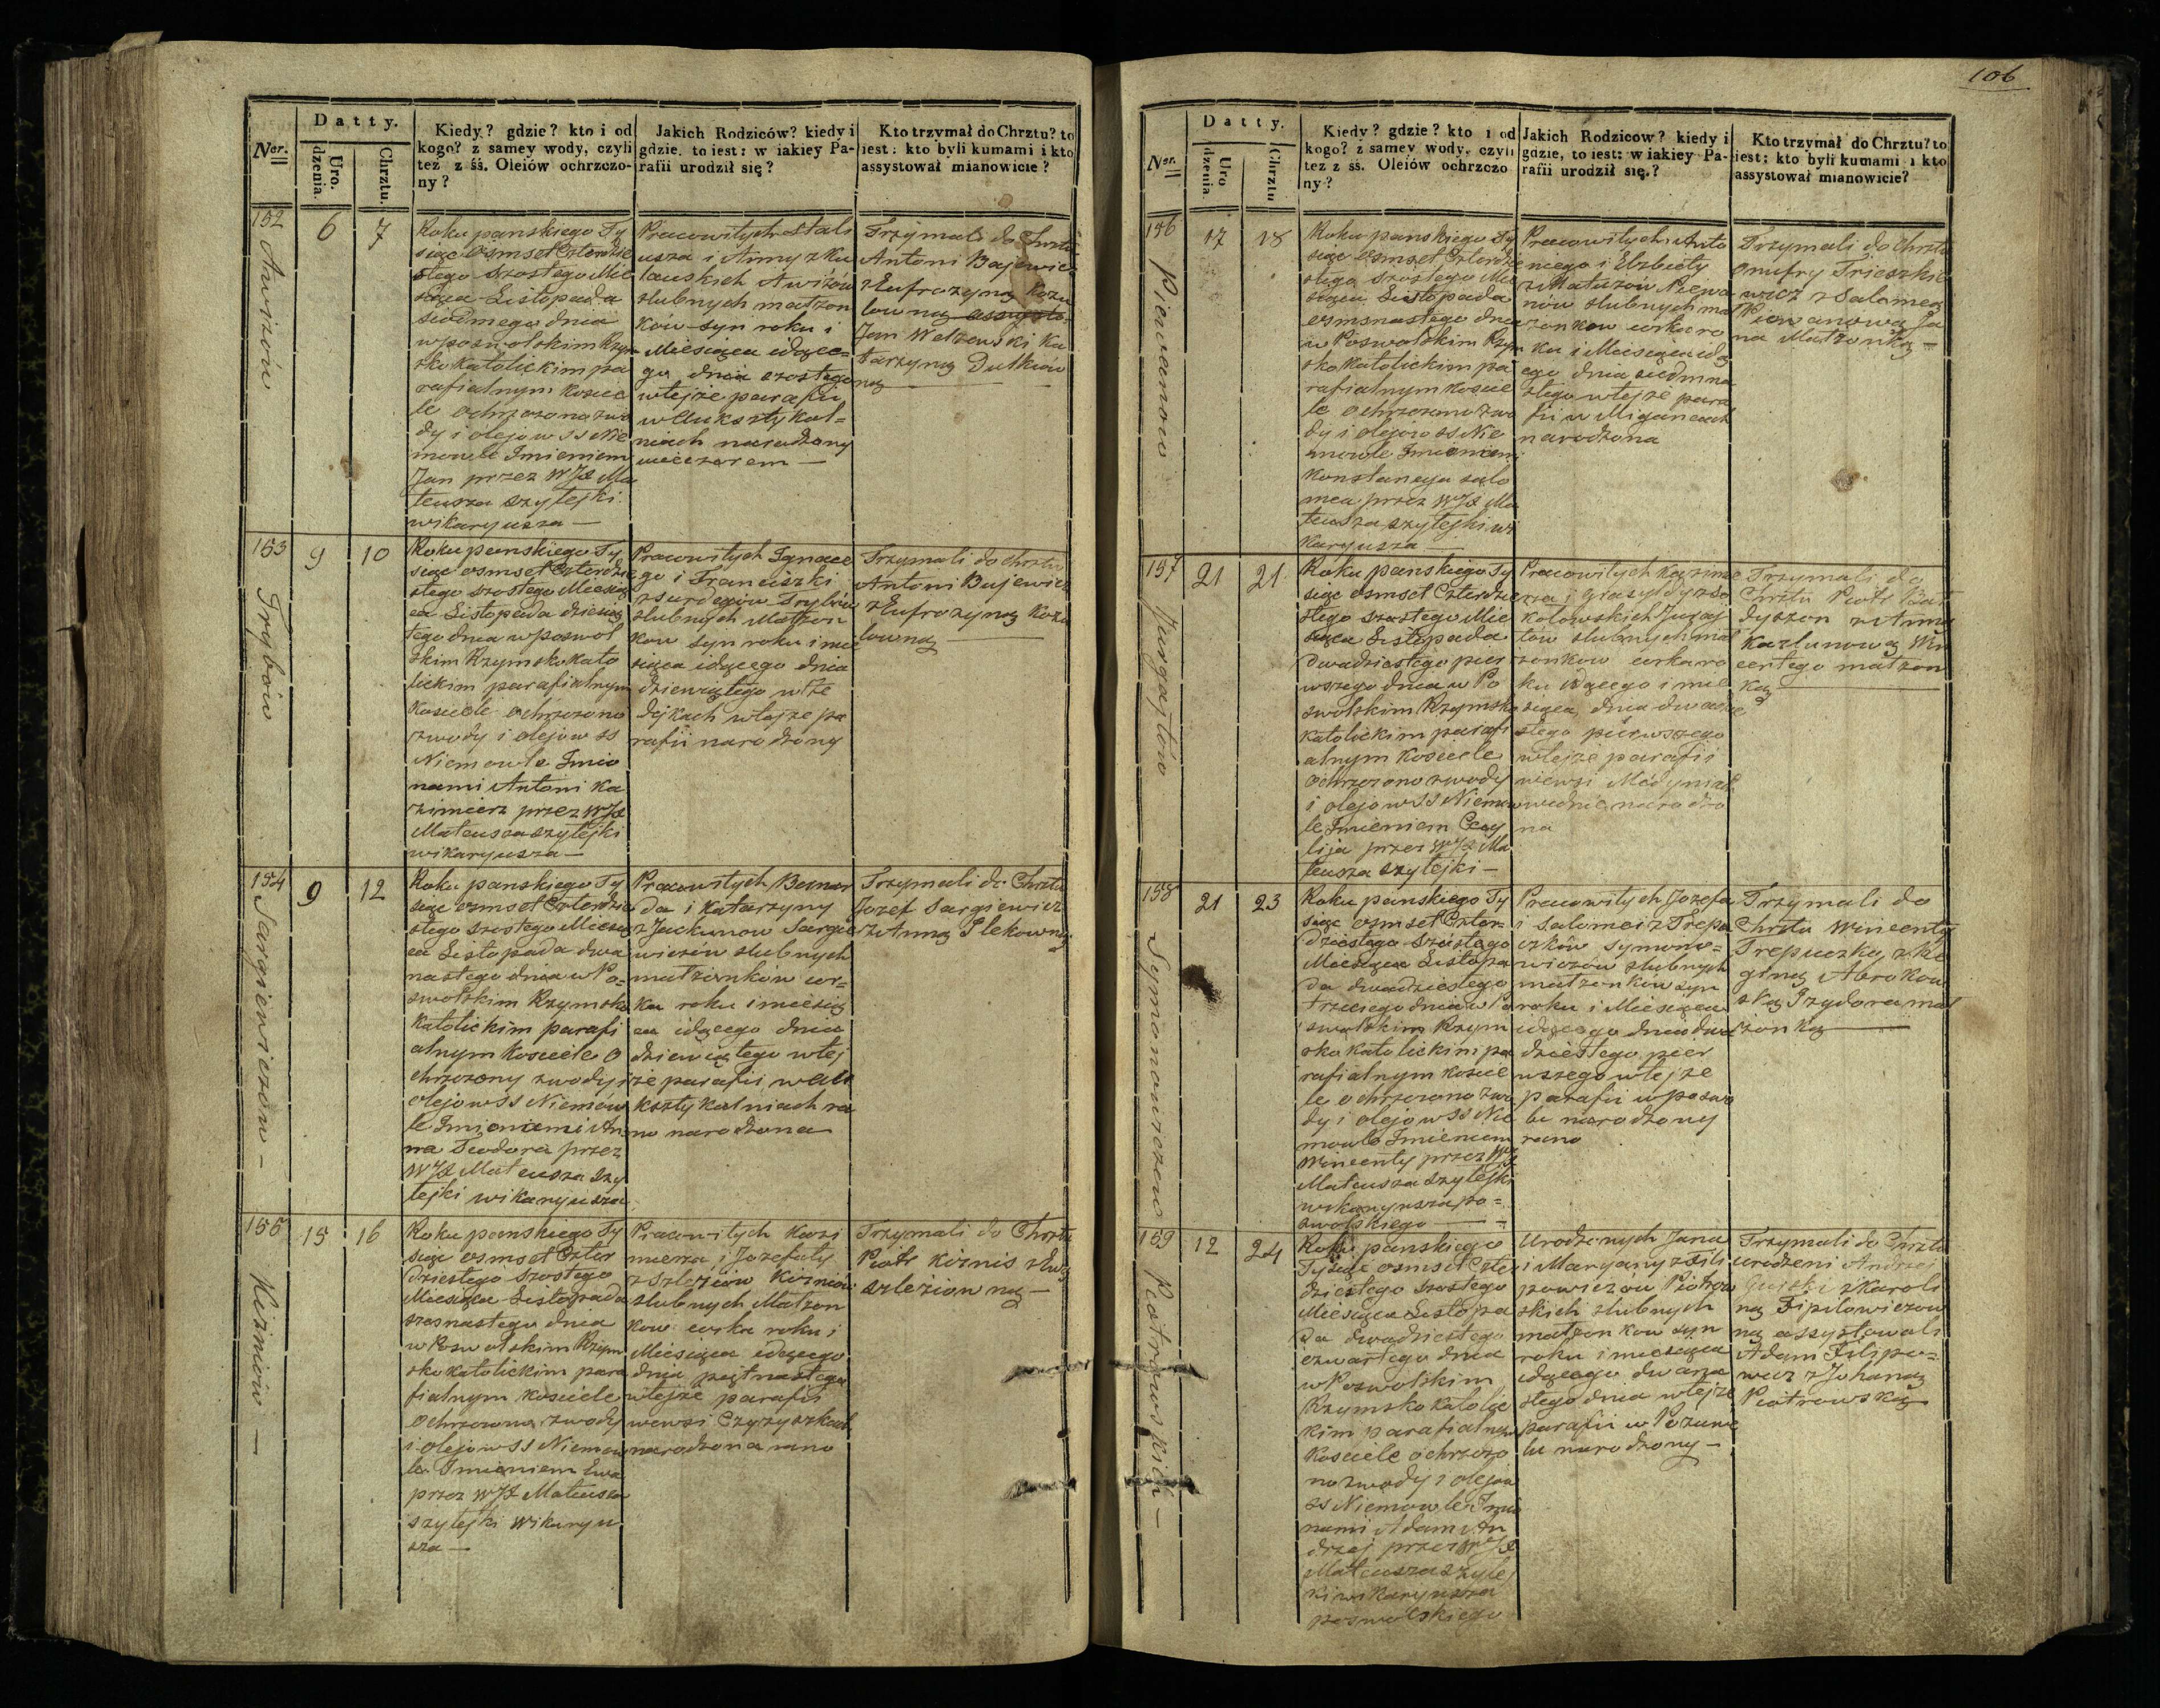 106
Datty.
Ner.
Uro.
dzenia.
Chrztu.
Kiedy? gdzie? kto i od
kogo? z samey wody, czyli
też z śś. Oleiów ochrzczo-
ny?
Jakich Rodziców? kiedy i
gdzie, to iest: w iakiey Pa-
rafii urodził się?
Kto trzymał do Chrztu? to
iest: kto byli kumami i kto
assystował mianowicie?
152
Awizów
6
7
Roku panskiego Ty
siąc osmset Czterdzie
stego szostego Mie
siąca Listopada
siodmego dnia
w poswolskim Rzym
sko katolickim pa
rafialnym kosciele
le ochrzczono z wo
dy i olejow SS Nie
mowle Imieniem
Jan przez WJX Ma
teusza Szytejki
wikaryusza —
Pracowitych
usza i Anny z Ku
Awizów
slubnych matzon
ków syn roku i
Miesiąca idące-
go dnia szostego
w tejże parafii
narodzony
wieczorem —
Trzymali do Chrztu
Antoni Bajewicz
z Eufrozyną Kozu
lowną assysto-
Jan Ka
tarzyną
ną
153
Trybów
9
10
Roku panskiego Ty
siąc osmset Czterdzie
stego szostego Miesią
ca Listopada dziesią
tego dnia w poswol
skim Rzymsko kato
lickim parafialnym
kosciele ochrzczono
z wody i olejow SS
Niemowle Imio
nami Antoni Ka
zimierz przez WJX
Mateusza Szytejki
wikaryusza —
Pracowitych Ignace
go i Franciszki
Trybów
slubnych Matzon
kow syn roku i mie
siąca idącego dnia
dziewiątego w
w tejże pa
rafii narodzony
Trzymali do chrztu
Antoni Bajewicz
z Eufrozyną Kozu
lowną
154
Sargiewiczów —
9
12
Roku panskiego Ty
siąc osmset Czterdzie
stego szostego Miesią
ca Listopada dwu
nastego dnia w Po-
swolskim Rzymsko
Katolickim parafi
alnym kosciele o
chrzczony z wody i
olejow SS Niemow
le Imionami An
na Teodora przez
WJX Mateusza Szy
tejki wikaryusza
Pracowitych Bernar
da i Katarzyny
z Jackunow Sargie
wiczów slubnych
matzonków cor-
ka roku i miesią
ca idącego dnia
dziewiątego w tej
że parafii
ra
no narodzona
Trzymali do Chrztu
Jozef Sargiewicz
z Anną
155
Kiżniów —
15
16
Roku panskiego Ty
siąc osmset Czter
dziestego szostego
Miesiąca Listopada
szesnastego dnia
w Poswolskim Rzym
sko katolickim para
fialnym kosciele
ochrzczono z wody
i olejow SS Niemow
le Imieniem Ewa
przez WJX Mateusza
Szytejki wikaryu
sza —
Pracowitych Kazi
mierza i Jozefaty
z Szleżiów Kiżniów
slubnych Matzon
kow corka roku i
Miesiąca idącego
dnia piętnastego
w tejże parafii
we wsi Czyżyszkach
narodzona rano
Trzymali do Chrztu
Piotr Kiżnis z Ewą
Szleżiowną —
Datty.
Ner.
Uro
dzenia.
Chrztu
Kiedy? gdzie? kto i od
kogo? z samey wody, czyli
też z śś. Oleiów ochrzczo
ny?
Jakich Rodziców? kiedy i
gdzie, to iest: w iakiey Pa-
rafii urodził się?
Kto trzymał do Chrztu? to
iest; kto byli kumami i kto
assystował mianowicie?
156
Piewanow
17
18
Roku panskiego Ty
siąc osmset Czterdzie
stego szostego Mie
siąca Listopada
osmnastego dnia
w Poswolskim Rzym
sko katolickim pa
rafialnym koscie
le ochrzczono z wo
dy i olejow SS Nie
mowle Imieniem
Konstancya Salo
mea przez WJX Ma
teusza Szytejki wi
karyusza —
Pracowitych Anto
niego i Elzbiety
nów slubnych ma
zonkow corka ro
ku i Miesiąca idą
cego dnia siedmna
stego w tejże para
fii w Migancach
narodzona
Trzymali do chrztu
Onufry
wicz z Salomeą
Piewanową Ja
na Matzonką —
157
Jurgajtów
21
21
Roku panskiego Ty
siąc osmset Czterdzie
stego szostego Mie
siąca Listopada
dwudziestego pier
wszego dnia w Po
swolskim Rzymsko
katolickim parafi
alnym kosciele
ochrzczono z wody
i olejow SS Niemow
le Imieniem Cecy
lija przez WJX Ma
teusza Szytejki —
Pracowitych Kazimie
rza i
kolowskich Jurgaj
tów slubnych mał
zonkow corka ro
ku idącego i mie
siąca dnia dwudzie
stego pierwszego
w tejże parafii
we wsi
narodzo
na
Trzymali do
Chrztu Piotr
z Anną
Kazlunową Win
centego matzon
ką
158
Symonowiczow
21
23
Roku panskiego Ty
siąc osmset Czter-
dziestego szostego
Miesiąca Listopa
da dwudziestego
trzeciego dnia w Po
swolskim Rzym
sko katolickim pa
rafialnym koscie
le ochrzczono z wo
dy i olejow SS Nie
mowle Imieniem
Wincenty przez WJX
Mateusza Szytejki
wikaryusza po-
swolskiego —
Pracowitych Jozefa
i Salomei z Trepu
czków Symono-
wiczow slubnych
matzonkow syn
roku i Miesiąca
idącego dnia dwu
dziestego pier
wszego w tejże
parafii w poswo
lu narodzony
rano
Trzymali do
Chrztu Wincenty
Trepuczka z Re
giną
Izydora mał
żonką
159
Piotrowskich —
12
24
Roku panskiego
Tysiąc osmset Czter
dziestego szostego
Miesiąca Listopa
da dwudziestego
czwartego dnia
w Poswolskim
Rzymsko katolic
kim parafialnym
kosciele ochrzczo
no z wody i olejow
SS Niemowle Imio
nami Adam An
drzej przez WJX
Mateusza Szytej
ki wikaryusza
poswolskiego
Urodzonych Jana
i Maryany z Fili
powiczów Piotrow
skich slubnych
matzonkow syn
roku i miesiąca
idącego dwuna
stego dnia w tejże
parafii w Pozwo
lu narodzony —
Trzymali do Chrztu
urodzeni Andrzej
z Karoli
ną Filipowiczow
ną assystowali
Adam Filipo-
wicz z Johanną
Piotrowską